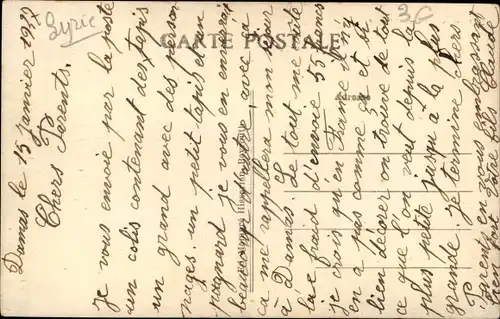 Syrie
3€
CARTE POSTALE
Adresse
Damas le 15 janvier 19
Chers Parents.
je vous envoie par la poste
un colis contenant des tapis
un grand avec des person
nages, un petit tapis et un
poignard je vous en enverrai
beaucoup d'autre, avec
ça me rappellera mon séjour
à Damas. Le tout me coûte
les fraid d'envoie 55 francs
je crois qu'en France il n'y
en a pas comme ça et
bien décorer on trouve de tout
ce que l'on veut depuis la
plus petite jusqu'à la plus
grande. je termine chers
Parents, en vous embrassant